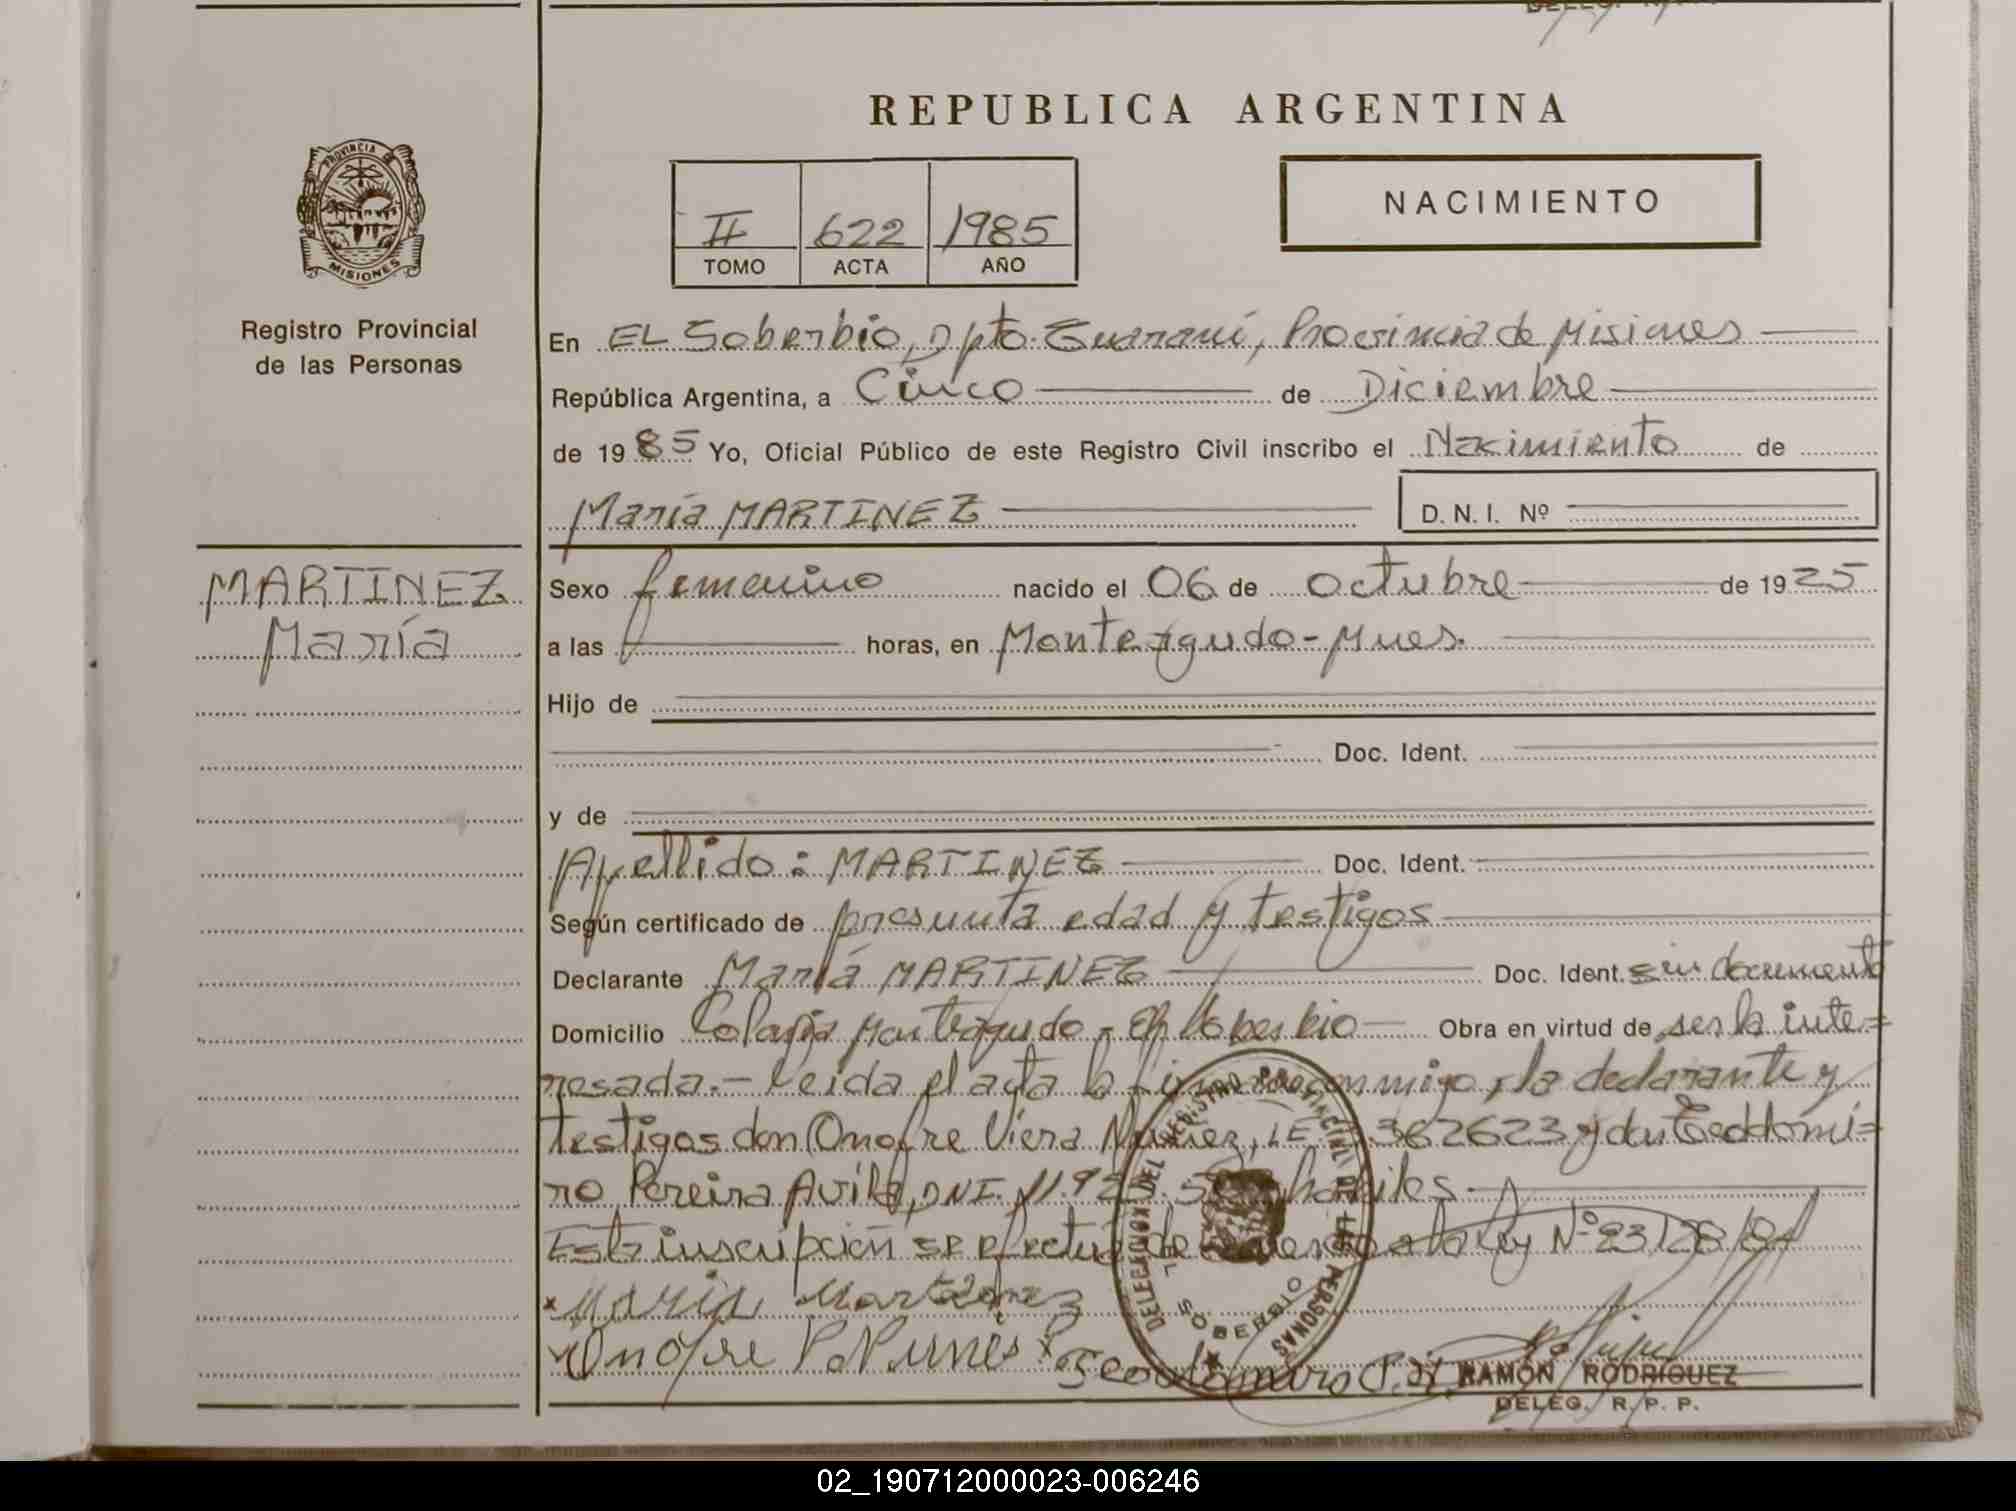 REPUBLICA ARGENTINA
PROVINCIA DE
MISIONES
Registro Provincial
de las Personas
II 622 1985
TOMO ACTA AÑO
NACIMIENTO
En EL Soberbio, Dpto. Guaraní, Provincia de Misiones
República Argentina, a Cinco de Diciembre
de 1985 Yo, Oficial Público de este Registro Civil inscribo el Nacimiento de
María MARTINEZ D. N. I. Nº
MARTINEZ
María
Sexo femenino nacido el 06 de octubre de 1925
a las horas, en Monteagudo - Mnes.
Hijo de
Doc. Ident.
y de
Apellido: MARTINEZ Doc. Ident.
Según certificado de presunta edad y testigos
Declarante María MARTINEZ Doc. Ident. sin documento
Domicilio Colonia Monteagudo - El Soberbio Obra en virtud de ser la inte=
resada.- Leida el acta la conmigo, la declarante y
testigos don Onofre Viera Nuñez, LE 362623 y don Teodomi=
ro Pereira Avila, DNI. habiles
Esta inscripción se efectúa de a la Ley Nº 23128/84
x Maria Martinez
Onofre V. Nunes x Teodomiro P.
DELEGACION DEL REGISTRO PROVINCIAL DE LAS PERSONAS
EL SOBERBIO
RAMON RODRIGUEZ
DELEG. R. P. P.
02_190712000023-006246